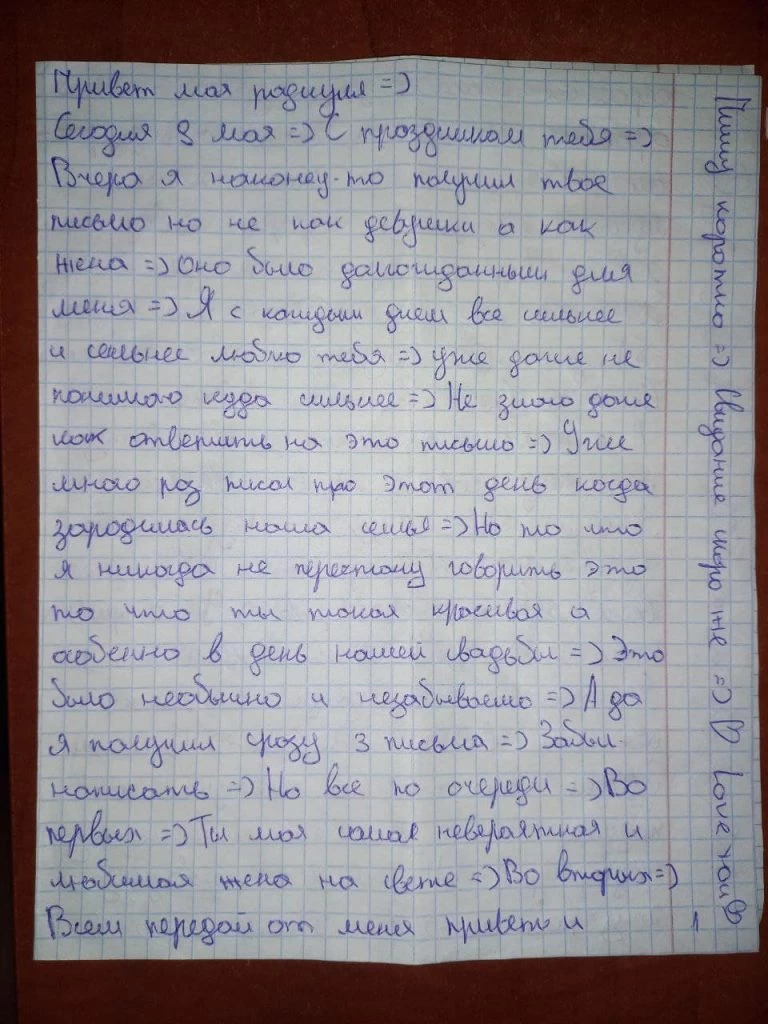 Привет моя роднуля =)
Сегодня 9 мая =) С праздником тебя =)
Вчера я наконец-то получил твое
письмо но не как девушки а как
жена =) Оно было долгожданным для
меня =) Я с каждым днем все сильнее
и сильнее люблю тебя =) уже даже не
понимаю куда сильнее =) Не знаю даже
как ответить на это письмо =) Уже
много раз писал про этот день когда
зародилась наша семья =) Но то что
я никогда не перестану говорить это
то что ты такая красивая а
особенно в день нашей свадьбы =) Это
было необычно и незабываемо =) А да
я получил сразу 3 письма =) Забыл
написать =) Но все по очереди =) Во
первых =) Ты моя самая невероятная и
любимая жена на свете =) Во вторых =)
Всем передай от меня приветы и
1
Пишу коротко =) Свидание скоро же =) ♡ Love You ♡